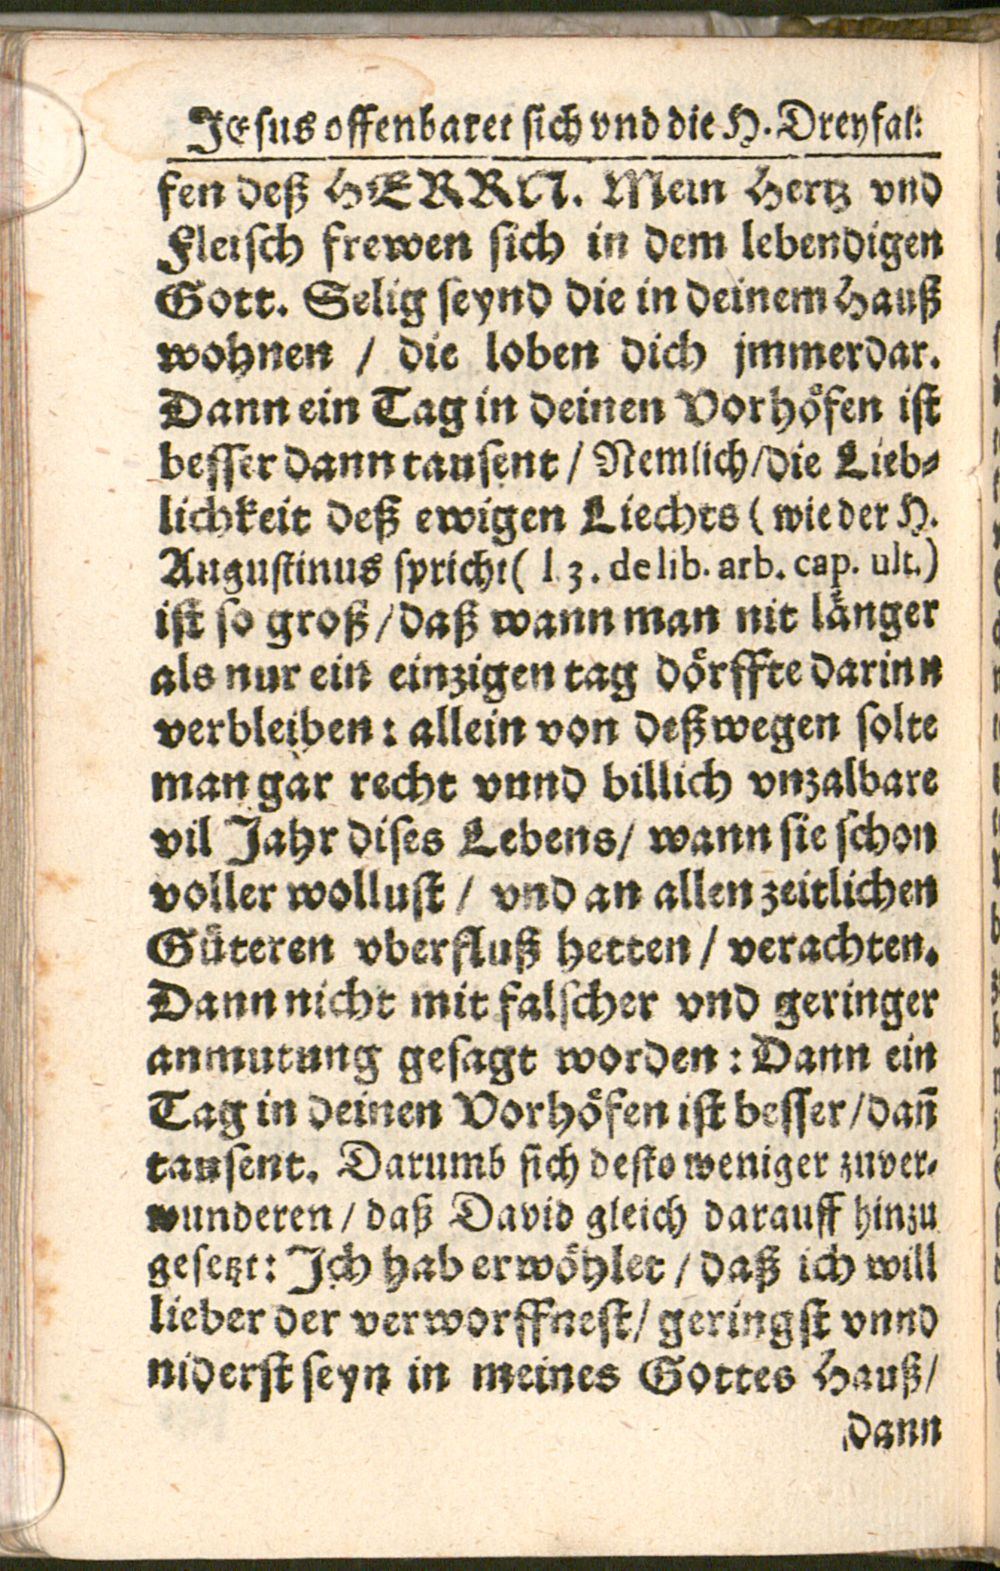 JEsus offenbaret sich vnd die H. Dreyfal:
fen deß HERRN. Mein Hertz vnd
Fleisch frewen sich in dem lebendigen
Gott. Selig seynd die in deinem Hauß
wohnen / die loben dich jmmerdar.
Dann ein Tag in deinen Vorhöfen ist
besser dann tausent / Nemlich / die Lieb-
lichkeit deß ewigen Liechts ( wie der H.
Augustinus spricht ( l 3. de lib. arb. cap. ult.)
ist so groß / daß wann man nit länger
als nur ein einzigen tag dörffte darinn
verbleiben : allein von deßwegen solte
man gar recht vnnd billich vnzalbare
vil Jahr dises Lebens / wann sie schon
voller wollust / vnd an allen zeitlichen
Güteren vberfluß hetten / verachten.
Dann nicht mit falscher vnd geringer
anmutung gesagt worden : Dann ein
Tag in deinen Vorhöfen ist besser / dañ
tausent. Darumb sich desto weniger zuver-
wunderen / daß David gleich darauff hinzu
gesetzt : Ich hab erwöhlet / daß ich will
lieber der verworffnest / geringst vnnd
niderst seyn in meines Gottes Hauß /
dann